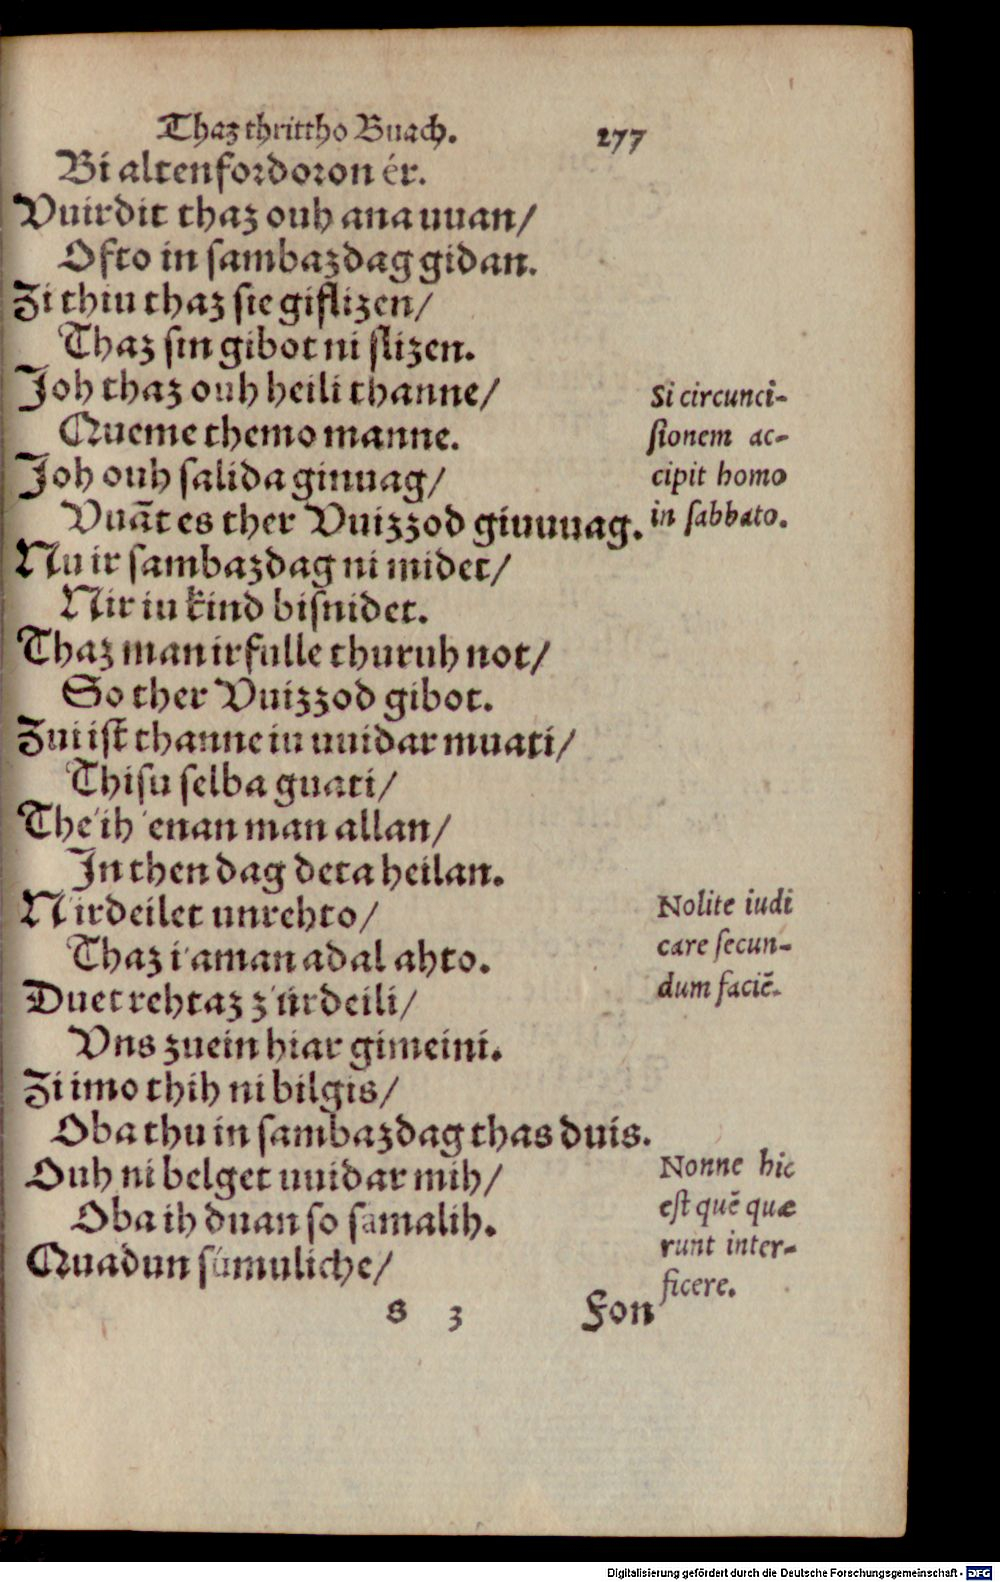 Thaz thrittho Buach. 277
Bi alten fordoron ér.
Vuirdit thaz ouh ana uuan/
Ofto in sambazdag gidan.
Zi thiu thaz sie giflizen/
Thaz sin gibot ni slizen.
Joh thaz ouh heili thanne/
Queme themo manne.
Joh ouh salida ginuag/
Vuāt es ther Vuizzod giuuuag.
Nu ir sambazdag ni midet/
Nir iu kind bisnidet.
Thaz man irfulle thuruh not/
So ther Vuizzod gibot.
Zui ist thanne iu uuidar muati/
Thisu selba guati/
The' ih 'enan man allan/
In then dag deta heilan.
N'irdeilet unrehto/
Thaz i'aman adal ahto.
Duet rehtaz z'iirdeili/
Vns zuein hiar gimeini.
Zi imo thih ni bilgis/
Oba thu in sambazdag thas duis.
Ouh ni belget uuidar mih/
Oba ih duan so samalih.
Quadun sumuliche/
S 3 Fon
Si circunci-
sionem ac-
cipit homo
in sabbato.
Nolite iudi
care secun-
dum faciē.
Nonne hic
est quē quæ
runt inter-
ficere.
Digitalisierung gefördert durch die Deutsche Forschungsgemeinschaft - DFG